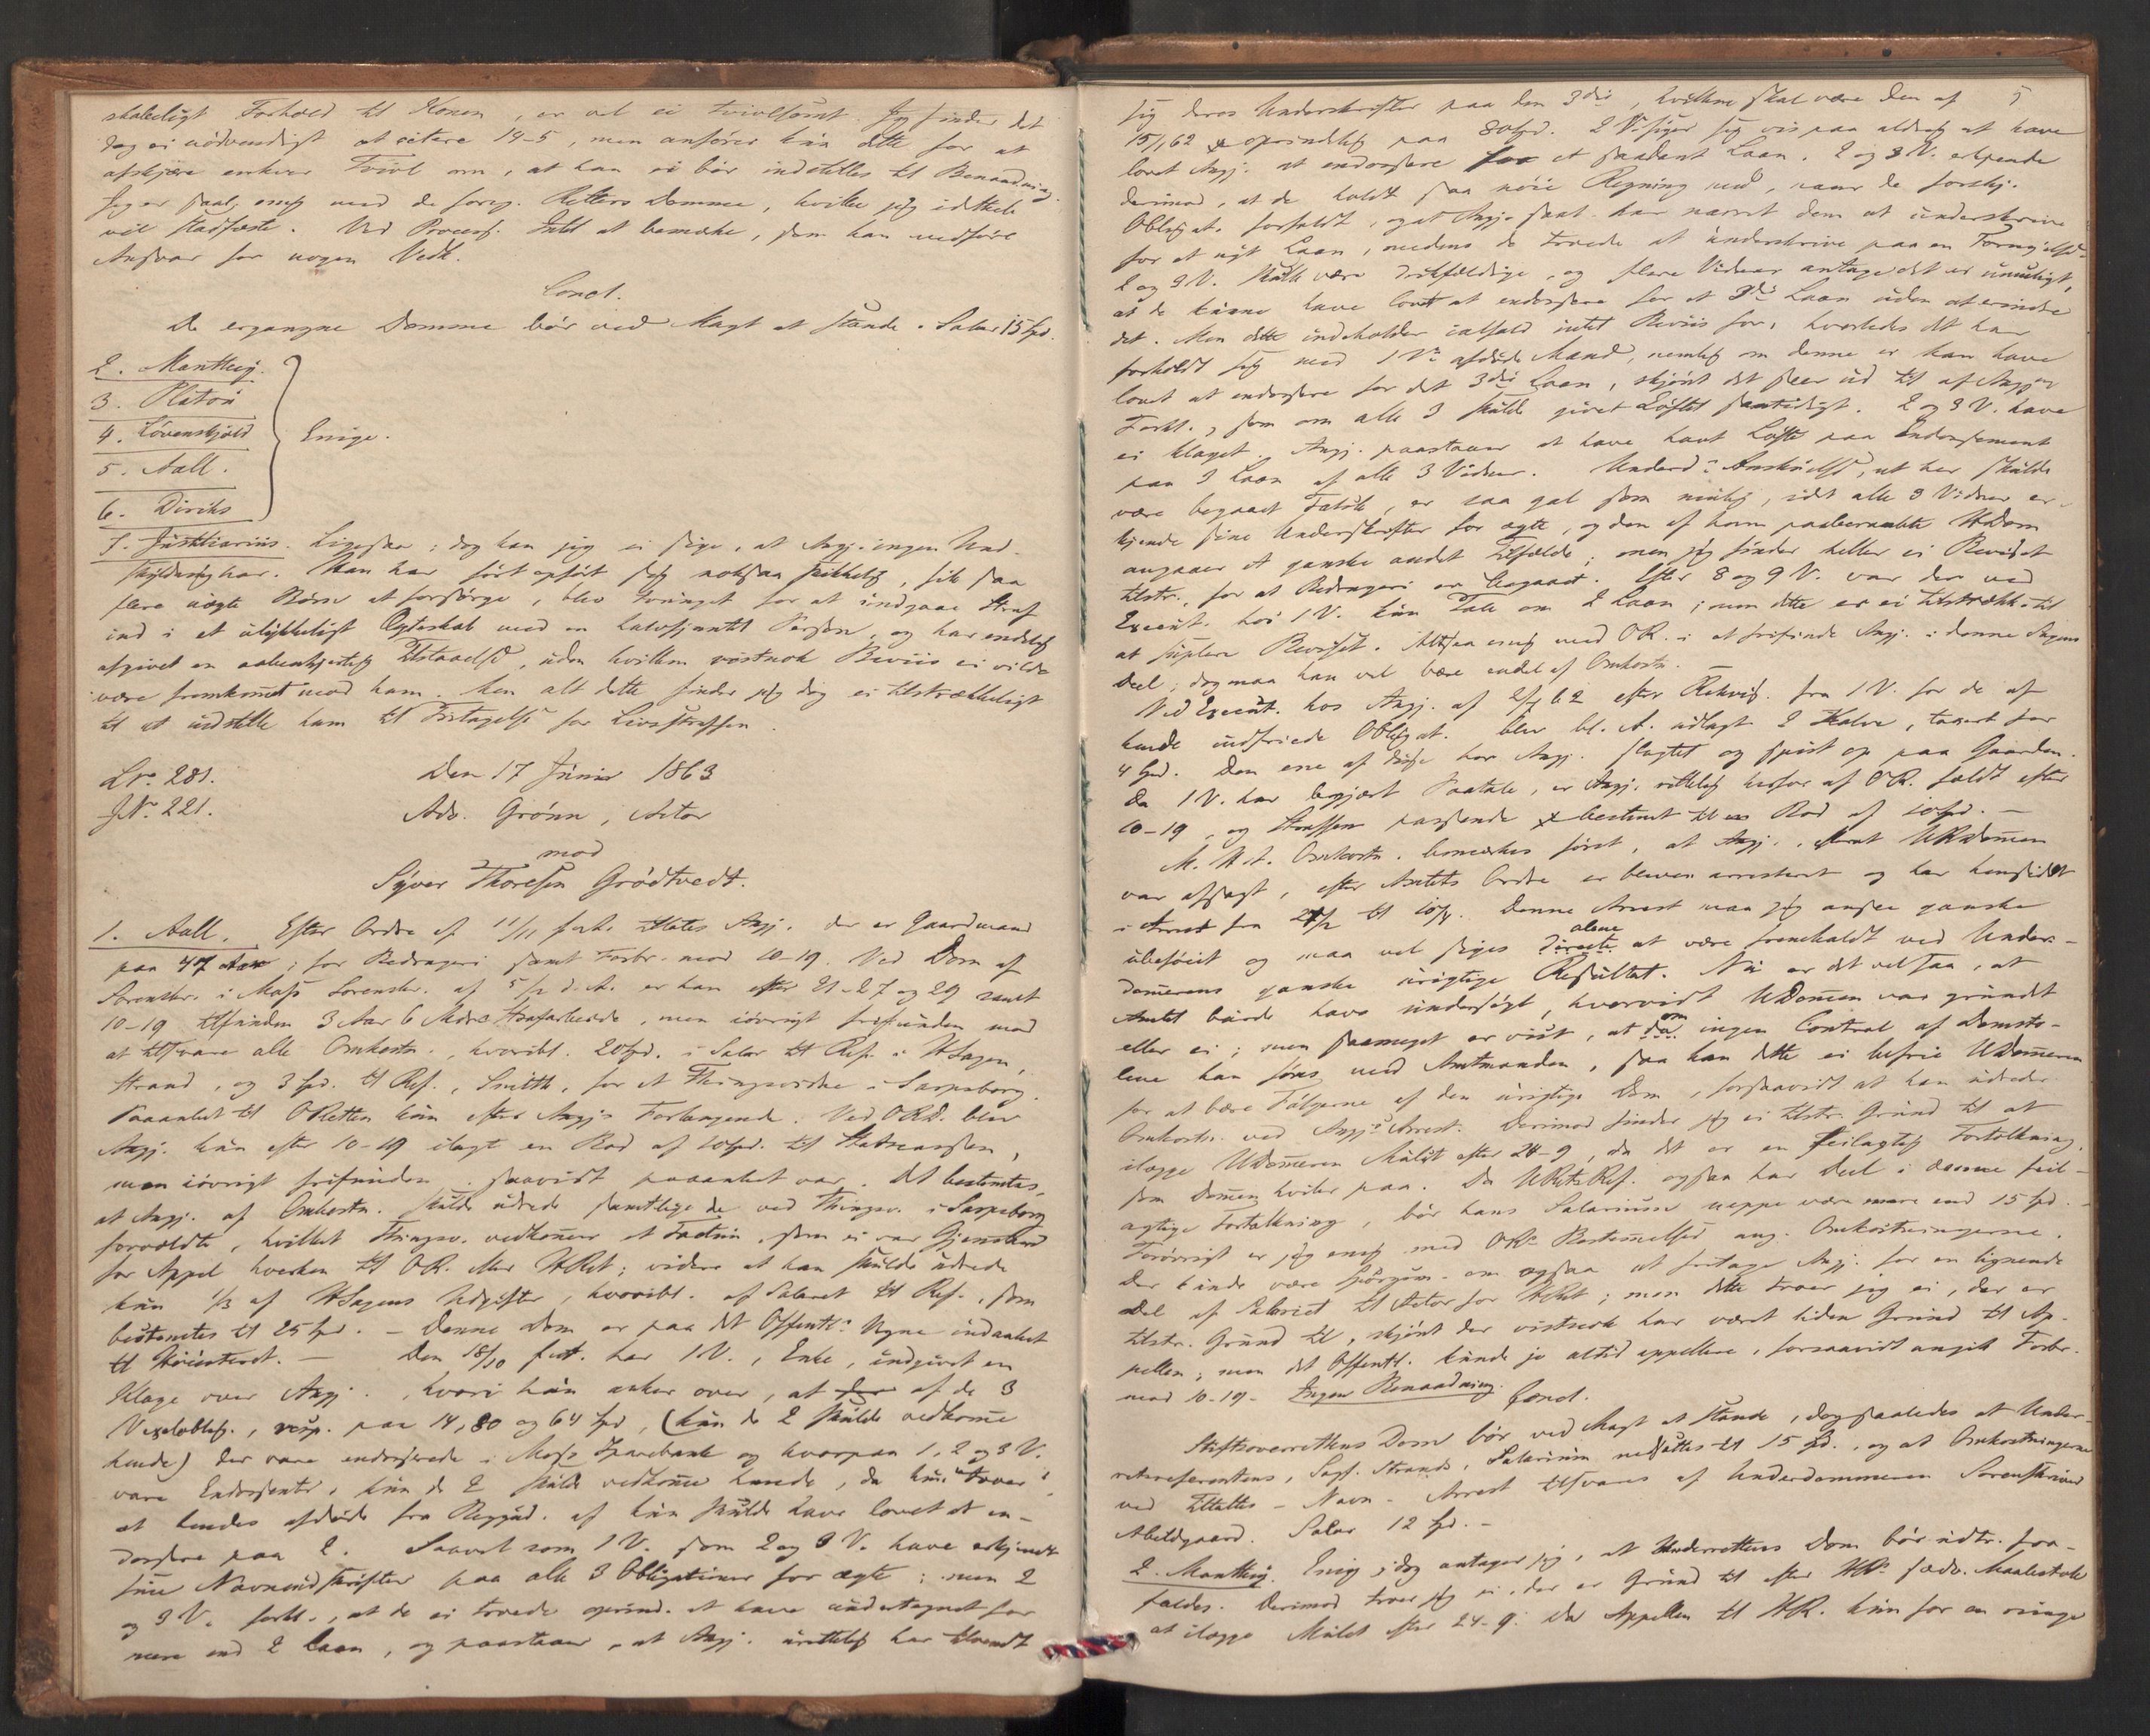 skabeligt Forhold til Konen, er vel ei tvivlsomt. Jeg finder det
dog ei nödvendigt at citere 14-5, men anförer kun dette for at
afskjære enhver Tvivl om, at han ei bör indstilles til Benaadning.
Jeg er saal. enig med de foreg. Retters Domme, hvilke jeg
vil stadfæste. Ved Procesf. Intet at bemærke, som kan medföre
Ansvar for nogen Vedk.
Concl.
De ergangne Domme bör ved Magt at stande. Salær 15 Spd.
2. Manthey.
3. Platou
4. Lövenskjold
5. Aall.
6. Diriks
Enige.
7. Justitiarius. Ligesaa; dog kan jeg ei sige, at Angj. ingen Und-
skyldning har. Han har fört opfört sig noksaa skikkelig, fik saa
flere uægte Börn at forsörge, blev tvunget for at undgaae Straf
ind i et ulykkeligt Ægteskab med en halvfjantet Person, og har endelig
afgivet en aabenhjertig Tilstaaelse, uden hvilken vistnok Beviis ei vilde
være fremkommet mod ham. Men alt dette finder jeg dog ei tilstrækkeligt
til at indstille ham til Fritagelse for Livsstraffen.
L No. 281.
J No. 221.
Den 17 Juni 1863
Adv. Grönn, Actor
mod
Syver Thoresen Grödtvedt.
1. Aall. Efter Ordre af 11/11 f. A. tiltales Angj. der er Gaardmand
paa 47 Aar, for Bedrageri samt Forbr. mod 10-19. Ved Dom af
Sorenskr. i Moss Sorenskr. af 5/2 d. A. er han efter 21-27 og 29 samt
10-19 tilfunden 3 Aar 6 Mdrs Strafarbeide, men iövrigt frifunden mod
at tilsvare alle Omkostn., hvoribl. 20 Spd. i Salær til Ref. i USagen,
Strand, og 3 Spd. til Ref., Smith, for et Thingsvidne i Sarpsborg.
Paaanket til ORetten kun efter Angjs Forlangende. Ved ORD. blev
Angj. kun efter 10-19 ilagt en Bod af 10 Spd. til Statscassen,
men iövrigt frifunden, saavidt paaanket var. Det bestemtes,
at Angj. af Omkostn. skulde udrede samtlige de ved Thingsv. i Sarpsborg
forvoldte, hvilket Thingsv. vedkommer et Factum, som ei var Gjenstand
for Appel hverken til OR. eller HRet; videre at han skulde udrede
kun 1/3 af USagens Udgifter, hvoribl. af Salæret til Ref., som
bestemtes til 25 Spd. - Denne Dom er paa det Offentl.s Vegne indanket
til Höiesteret. - Den 18/10 f. A. har 1 V., Enke, indgivet en
Klage over Angj., hvori hun anker over, at af de 3
Vexeloblig., resp. paa 14, 80 og 64 Spd, (kun de 2 skulde vedkomme
hende) der vare endosserede i Moss Sparebank og hvorpaa 1, 2 og 3 V.
vare Endossenter, kun de 2 skulde vedkomme hende, da hun troer
at hendes afdöde
dossere paa 2. Saavel som 1 V. som 2 og 3 V. have erkjendt
sine Navneunderskrifter paa alle 3 Obligationer for ægte; men 2
og 3 V. forkl., at de ei troede oprind. at have undertegnet for
mere end 2 Laan, og paastaaer, at Angj. urettelig har tilvendt
5
sig deres Underskrifter paa den 3die, hvilken skal være den af
15/1 62 oprindelig paa 80 Spd. 2 V. siger sig vis paa aldrig at have
lovet Angj. at endossere et saadant Laan. 2 og 3 V. erkjende
derimod, at de holdt saa nöie Regning med, naar de forskj.
Obligat. forfaldt, og at Angj. saal. har narret dem at underskrive
for et nyt Laan, medens de troede at underskrive paa en Fornyelse.
2 og 3 V. skulle være drikfældige, og flere Vidner antage det ei umuligt,
at de kunne have lovet at endossere for et 3die Laan uden at erindre
det. Men dette indeholder ialfald intet Beviis for, hvorledes det har
forholdt sig med 1 V.s afdöde Mand, nemlig om denne ei kan have
lovet at endossere for det 3die Laan, skjönt det seer ud til af Angjs
Forkl., som om alle 3 skulde givet Löftet samtidigt. 2 og 3 V. have
ei klaget. Angj. paastaaer at have havt Löfte paa Endossement
paa 3 Laan af alle 3 Vidner. Underd.s Anskuelse, at her skulde
være begaaet Falsk, er saa gal som mulig, idet alle 3 Vidner er-
kjende sine Underskrifter for ægte, og den af ham paaberaabte HDom
angaaer et ganske andet Tilfælde; men jeg finder heller ei Beviset
tilstr. for at Bedrageri er begaaet. Efter 8 og 9 V. var der ved
Execut. hos 1 V. kun Tale om 2 Laan; men dette er ei tilstrækk. til
at supplere Beviset. Altsaa enig med OR. i at frifinde Angj. i denne Sagens
Deel; dog maa han vel bære endel af Omkostn. -
Ved Execut. hos Angj. af 2/7 62 efter Rekvis. fra 1 V. for de af
hende indfriede Obligat. blev bl. A. udlagt 2 Kalve, taxeret for
4 Spd. Den ene af disse har Angj. slagtet og spist op paa Gaarden.
Da 1 V. har begjært Paatale, er Angj. rettelig herfor af OR. fældt efter
10-19, og Straffen passende bestemt til en Bod af 10 Spd. -
M. H. t. Omkostn. bemærkes först, at Angj., förend URsdommen
var afsagt, efter Amtets Ordre er bleven arresteret og har hensiddet
i Arrest fra til 10/4. Denne Arrest maa jeg ansee ganske
ubeföiet og maa vel siges directe alene at være fremkaldt ved Under-
dommerens ganske urigtige Resultat. Nu er det vel saa, at
Amtet burde have undersögt, hvorvidt UDommen var grundet
eller ei; men saameget er vist, at da om ingen Control af Domsto-
lene kan föres med Amtmanden, saa kan dette ei befrie UDommeren
for at bære Fölgerne af den urigtige Dom, forsaavidt at han udreder
Omkostn. ved Angjs Arrest. Derimod finder jeg ei tilstr. Grund til at
ilægge UDommeren Mulct efter 24-9, da det er en feilagtig Fortolkning,
som Dommen hviler paa. Da URets Ref. ogsaa har Deel i denne feil-
agtige Fortolkning, bör hans Salarium neppe være mere end 15 Spd. -
Forövrigt er jeg enig med ORs Bestemmelse ang. Omkostningerne.
Der kunde være Spörgsm. om ogsaa at fritage Angj. for en lignende
Del af Salæriet til Actor for HRet; men dette troer jeg ei, der er
tilstr. Grund til, skjönt der vistnok har været liden Grund til Ap-
pellen; men det Offentl. kunde jo altid appellere, forsaavidt angik Forbr.
mod 10-19. Ingen Benaadning.
Concl.
Stiftsoverrettens Dom bör ved Magt at stande, dog saaledes at Under-
retsreferentens, Sagf. Strands, Salarium nedsættes til 15 Spd., og at Omkostningerne
ved Tiltaltes - Navn - Arrest tilsvares af Underdommeren Sorenskriver
Abildgaard. Salær 12 Spd. -
2. Manthey. Enig; dog antager jeg, at Underrettens Dom bör
faldes. Derimod troer jeg ei, der er Grund til efter HRs sædv. Maalestok
at ilægge Mulct efter 24-9. Da Appellen til HR. kun for en ringe